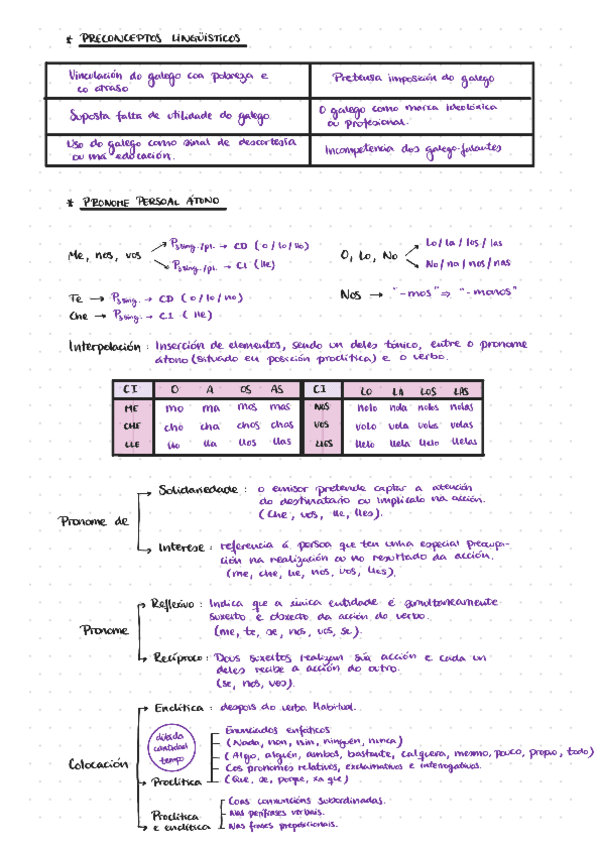 * PRECONCEPTOS LINGÜÍSTICOS
Vinculación do galego coa pobreza e
co atraso
Pretensa imposición do galego
Suposta falta de utilidade do galego
O galego como marca ideolóxica
ou profesional.
Uso do galego como sinal de descortesía
ou má educación.
Incompetencia dos galego-falantes
* PRONOME PERSOAL ÁTONO
Me, nos, vos
Psing./pl. → CD (o/lo/no)
Psing./pl. → CI (lle)
O, Lo, No
Lo/la/los/las
No/na/nos/nas
Te → Psing. → CD (o/lo/no)
Che → Psing. → CI (lle)
Nos → "-mos" ⇒ "-monos"
Interpolación: Inserción de elementos, sendo un deles tónico, entre o pronome
átono (situado en posición proclítica) e o verbo.
CI O A OS AS CI LO LA LOS LAS
ME mo ma mos mas NOS nolo nola nolos nolas
CHE cho cha chos chas VOS volo vola volos volas
LLE llo lla llos llas LLES llelo llela llelo llelas
Pronome de
Solidariedade: o emisor pretende captar a atención
do destinatario ou implicalo na acción.
(Che, vos, lle, lles).
Interese: referencia á persoa que ten unha especial preocupa-
ción na realización ou no resultado da acción.
(me, che, lle, nos, vos, lles).
Pronome
Reflexivo: Indica que a única entidade é simultaneamente
suxeito e obxecto da acción do verbo.
(me, te, se, nos, vos, se).
Recíproco: Dous suxeitos realizan súa acción e cada un
deles recibe a acción do outro.
(se, nos, vos).
Colocación
Enclítica: despois do verbo. Habitual.
dúbida
cantidad
tempo
Proclítica
Enunciados enfáticos
(Nada, non, nin, ninguén, nunca)
(Algo, alguén, ambos, bastante, calquera, mesmo, pouco, propio, todo)
Cos pronomes relativos, exclamativos e interrogativos.
(Que, se, porque, xa que)
Proclítica
e enclítica
Coas conxuncións subordinadas.
Nas perífrases verbais.
Nas frases preposicionais.